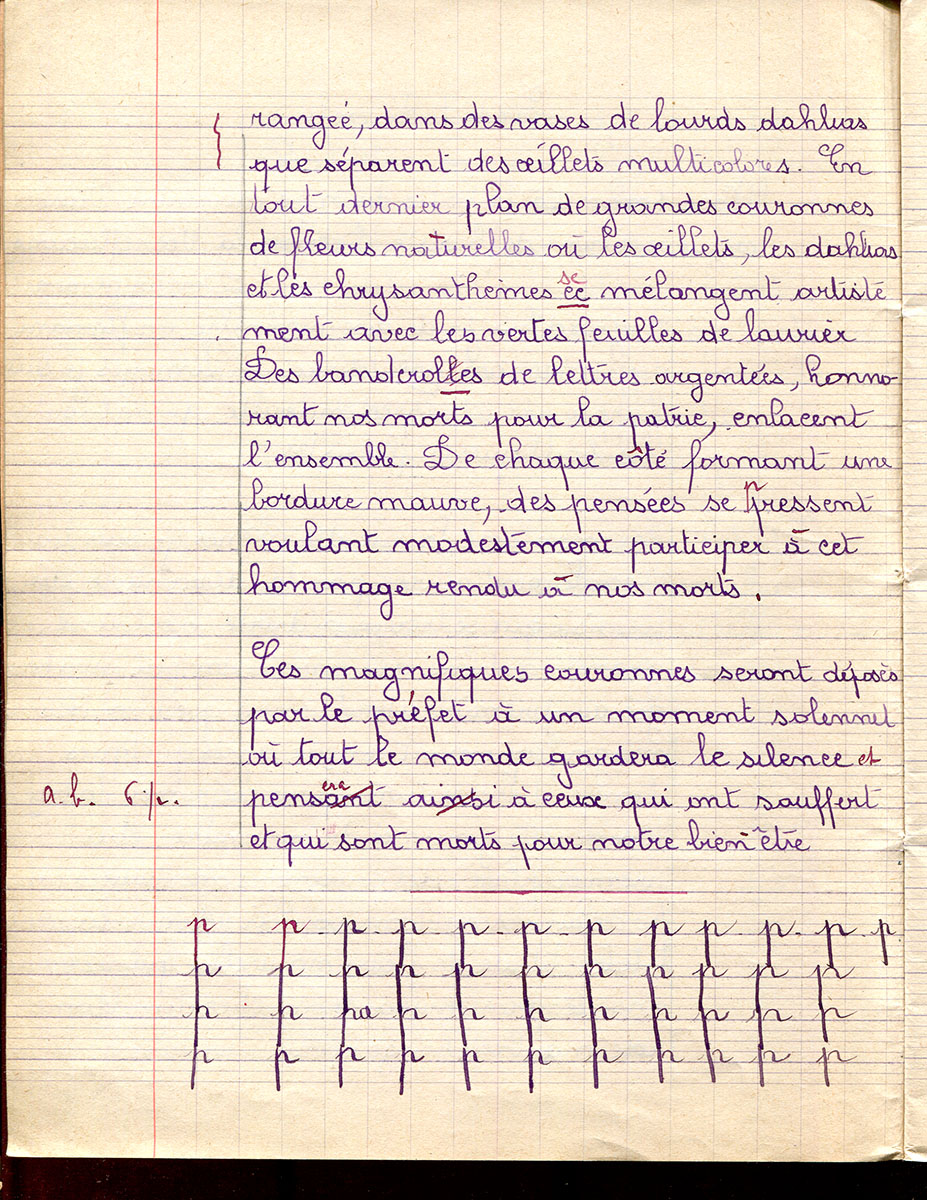 rangée, dans des vases de lourds dahlias
que séparent des œillets multicolores. En
tout dernier plan de grandes couronnes
de fleurs naturelles où les œillets, les dahlias
et les chrysanthèmes se ec mélangent artiste
ment avec les vertes feuilles de laurier
Des banderolles de lettres argentées, honno-
rant nos morts pour la patrie, enlacent
l'ensemble. De chaque côté formant une
bordure mauve, des pensées se pressent
voulant modestement participer à cet
hommage rendu à nos morts.
Ces magnifiques couronnes seront déposés
par le préfet à un moment solennel
où tout le monde gardera le silence et
a.b. 6 1/2. pensant era ainsi à ceux qui ont souffert
et qui sont morts pour notre bien-être
p p p p p p p p p p p p
p p p p p p p p p p p
p p pa p p p p p p p p
p p p p p p p p p p p